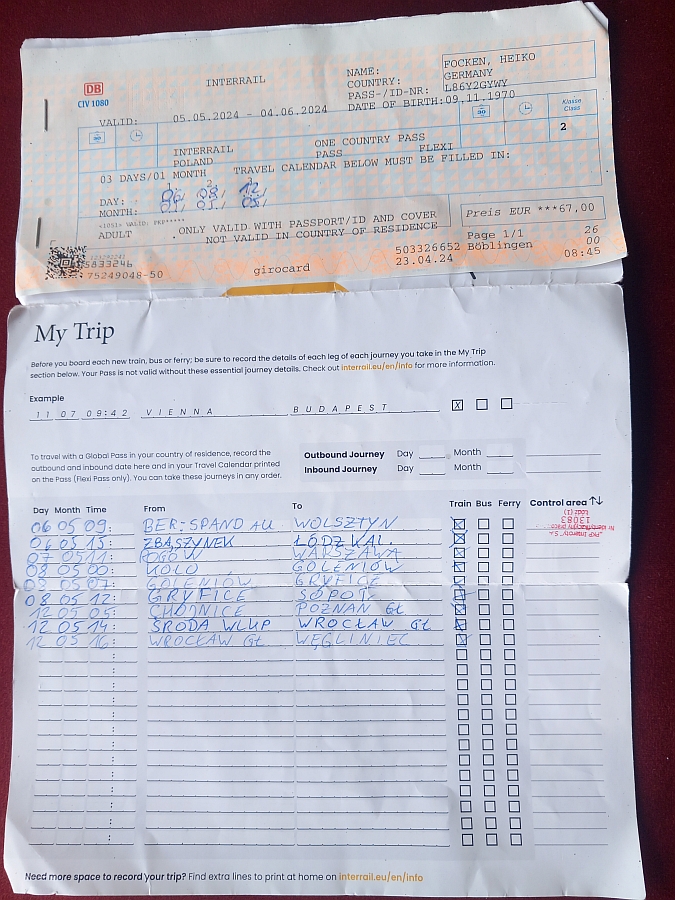 DB
CIV 1080
INTERRAIL
NAME: FOCKEN, HEIKO
COUNTRY: GERMANY
PASS-/ID-NR: L86Y2GYWY
DATE OF BIRTH: 09.11.1970
VALID: 05.05.2024 - 04.06.2024
Klasse
Class
2
INTERRAIL ONE COUNTRY PASS
POLAND PASS FLEXI
03 DAYS/01 MONTH TRAVEL CALENDAR BELOW MUST BE FILLED IN:
1. 2. 3.
DAY: 06, 08, 12,
MONTH: 05, 05, 05,
<1051> VALID: PKP*****
ADULT .ONLY VALID WITH PASSPORT/ID AND COVER
NOT VALID IN COUNTRY OF RESIDENCE
Preis EUR ***67,00
Page 1/1 26
503326652 Böblingen 00
5833246
75249048-50 girocard 23.04.24 08:45
My Trip
Before you board each new train, bus or ferry; be sure to record the details of each leg of each journey you take in the My Trip
section below. Your Pass is not valid without these essential journey details. Check out interrail.eu/en/info for more information.
Example
11 07 09:42 VIENNA BUDAPEST X
To travel with a Global Pass in your country of residence, record the
outbound and inbound date here and in your Travel Calendar printed
on the Pass (Flexi Pass only). You can take these journeys in any order.
Outbound Journey Day Month
Inbound Journey Day Month
Day Month Time From To Train Bus Ferry Control area
"PKP Intercity" S.A.
Nr identyfikacyjny
13083
Łódź (1)
06 05 09: BER-SPANDAU WOLSZTYN X
06 05 15: ZBĄSZYNEK ŁÓDŹ KAL. X
07 05 11: ROGÓW WARSZAWA X
08 05 00: KOŁO GOLENIÓW X
08 05 07: GOLENIÓW GRYFICE X
08 05 12: GRYFICE SOPOT X
12 05 05: CHOJNICE POZNAŃ GŁ X
12 05 14: ŚRODA WLKP WROCŁAW GŁ X
12 05 16: WROCŁAW GŁ WĘGLINIEC X
Need more space to record your trip? Find extra lines to print at home on interrail.eu/en/info